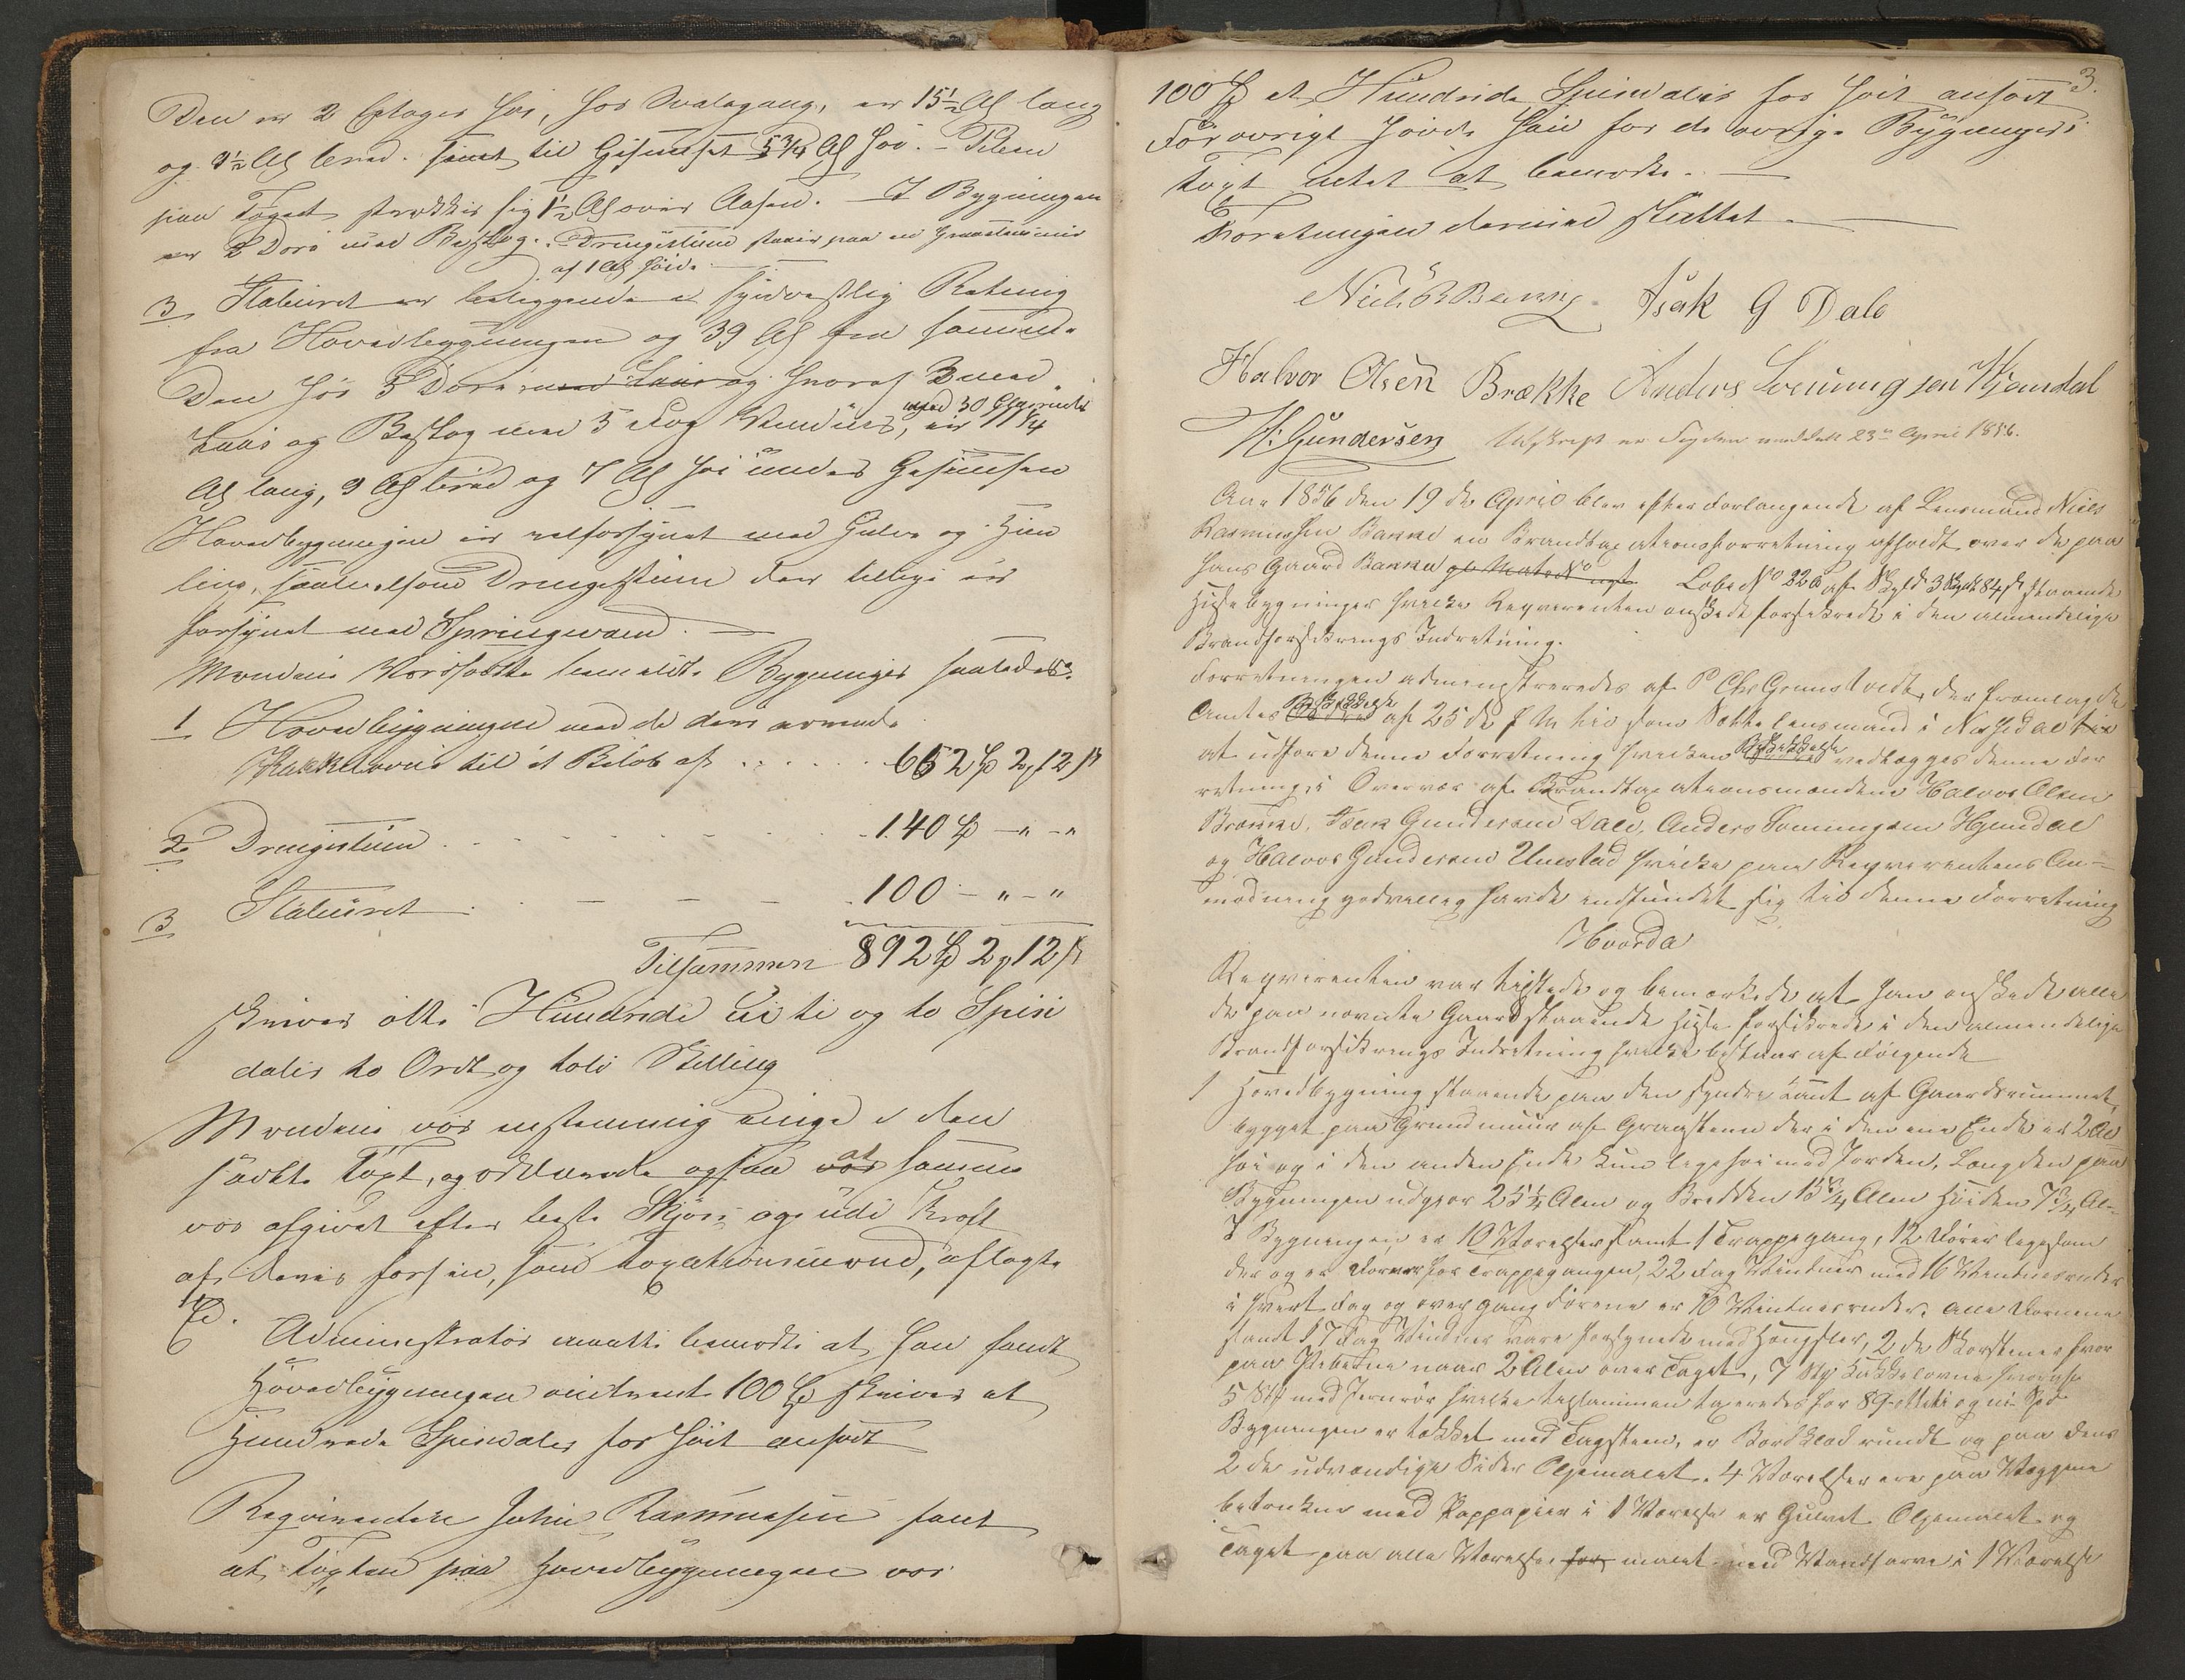 Den er 2 Etager høi, har Svalegang, er 15½ Al lang
og 9½ Al bred. samt til Gesimset 5¾ Al høi. –
paa Taget strækker sig 1½ Al over Aasen. – I Bygningen
er 2 Døre med Beslag. Drengestuen staaer paa en Graasteensmuur
af 1 Al Høide
3 Staburet er beliggende i sydvestlig Retning
fra Hovedbygningen og 39 Al fra samme.
Den har 5 Døre med Laas og hvoraf 3 med
Laas og Beslag med 5 Fag Vinduer, med 30 Glasruder er 11¼
Al lang, 9 Al bred og 7 Al høi under Gesimsen
Hovedbygningen er velforsynet med Gulve og Him
linger, saavelsom Drengestuen der tillige er
forsynet med
Mændene Værdsatte bemeldte Bygninger saaledes:
1 Hovedbygningen med de deri værende
Kakkelovne til et Beløb af . . . . . 652 Spd 2 # 12 ß
2 Drengestuen . . . . . 140 Spd – " – "
3 Staburet . – – – 100 – " – "
Tilsammen 892 Spd 2 # 12 ß
skriver otte Hundrede ti og to Specie
daler to Ordt og tolv Skilling
Mændene var enstemmig enige i den
satte Taxt, og erklærede ogsaa var at samme
var afgivet efter beste Skjøn og udi Kraft
af deres forhen, som Taxationsmænd, aflagte
Ed.
Administrator maatte bemærke at han fandt
Hovedbygningen omtrent 100 Spd skriver et
Hundrede Speciedaler for høit ansat
Reqvirenten John Rasmussen fandt
at Taxten paa Hovedbygningen var
3.
100 Spd et Hundrede Speciedaler for høit ansat
Forøvrigt havde han for de øvrige Bygningers
Taxt intet at bemærke. –
Forretningen dermed sluttet. –
Isak G Dale
Halvor Olsen Brække Anders Sveinungsen Hjemdal
H: Gundersen Udskrift er meddelt 23de April 1856.
Aar 1856 den 19de April blev efter Forlangende af Lensmand Niels
Rasmussen Bakke en Brandtaxationsforretning afholdt over de paa
hans Gaard Bakke Løbe No 226 af Skyld 3 84 ß staaende
Huusebygninger hvilke Reqvirenten ønskede forsikrede i den almindelige
Brandforsikrings Indretning.
Forretningen administreredes af P Chr Grimstvedt, der fremlagde
Amtets Beskikkelse af 25de f M til som Sættelensmand i
at udføre denne Forretning hvilken Beskikkelse vedlægges denne For
retning, i Overvær af Brandtaxationsmændene Halvor Olsen
Brække, Isak Gundersen Dale, Anders Sveinungsen Hjemdal
og Halvor Gundersen Ulvestad hvilke paa Reqvirentens An-
modning godvillig havde indfundet sig til denne Forretning
Hvorda
Reqvirenten var tilstede og bemærkede at han ønskede alle
de paa nævnte Gaard staaende Huse forsikrede i den almindelige
Brandforsikrings Indretning hvilke bestaar af følgende
1 Hovedbygning staaende paa den syndre Kant af Gaardsrummet
bygget paa Grundmuur af Graasteen der i den ene Ende er 2 Al
høi og i den anden Ende kun lige høi med Jorden, Længden paa
Bygningen udgjør 25½ Alen og Bredden 15¾ Alen Høiden 7¾ Al-
I Bygningen er 10 Værelser samt 1 Trappegang, 12 Dører ligesom
der og er Dører for Trappegangen, 22 Fag Vinduer med 16 Vinduesruder
i hvert Fag og over Gangdørene er 10 Vinduesruder. Alle Dørene
samt 17 Fag Vinduer vare forsynede med Hængsler, 2de Skorstene hvor
paa Piberne naar 2 Alen over Taget, 7 Stk Kakkelovne hvoraf
5 Stk med Jernrør hvilke tilsammen taxeredes for 89 otteti og ni Spd
Bygningen er tækket med Tagsteen, er Bordklæd rundt og paa dens
2de udvendige Sider Oljemalet. 4 Værelser ere paa Væggene
betrukne med Pappapier i 1 Værelse er Gulvet Oljemalet og
Taget paa alle Værelser for malet med Vandfarve i 1 Værelse